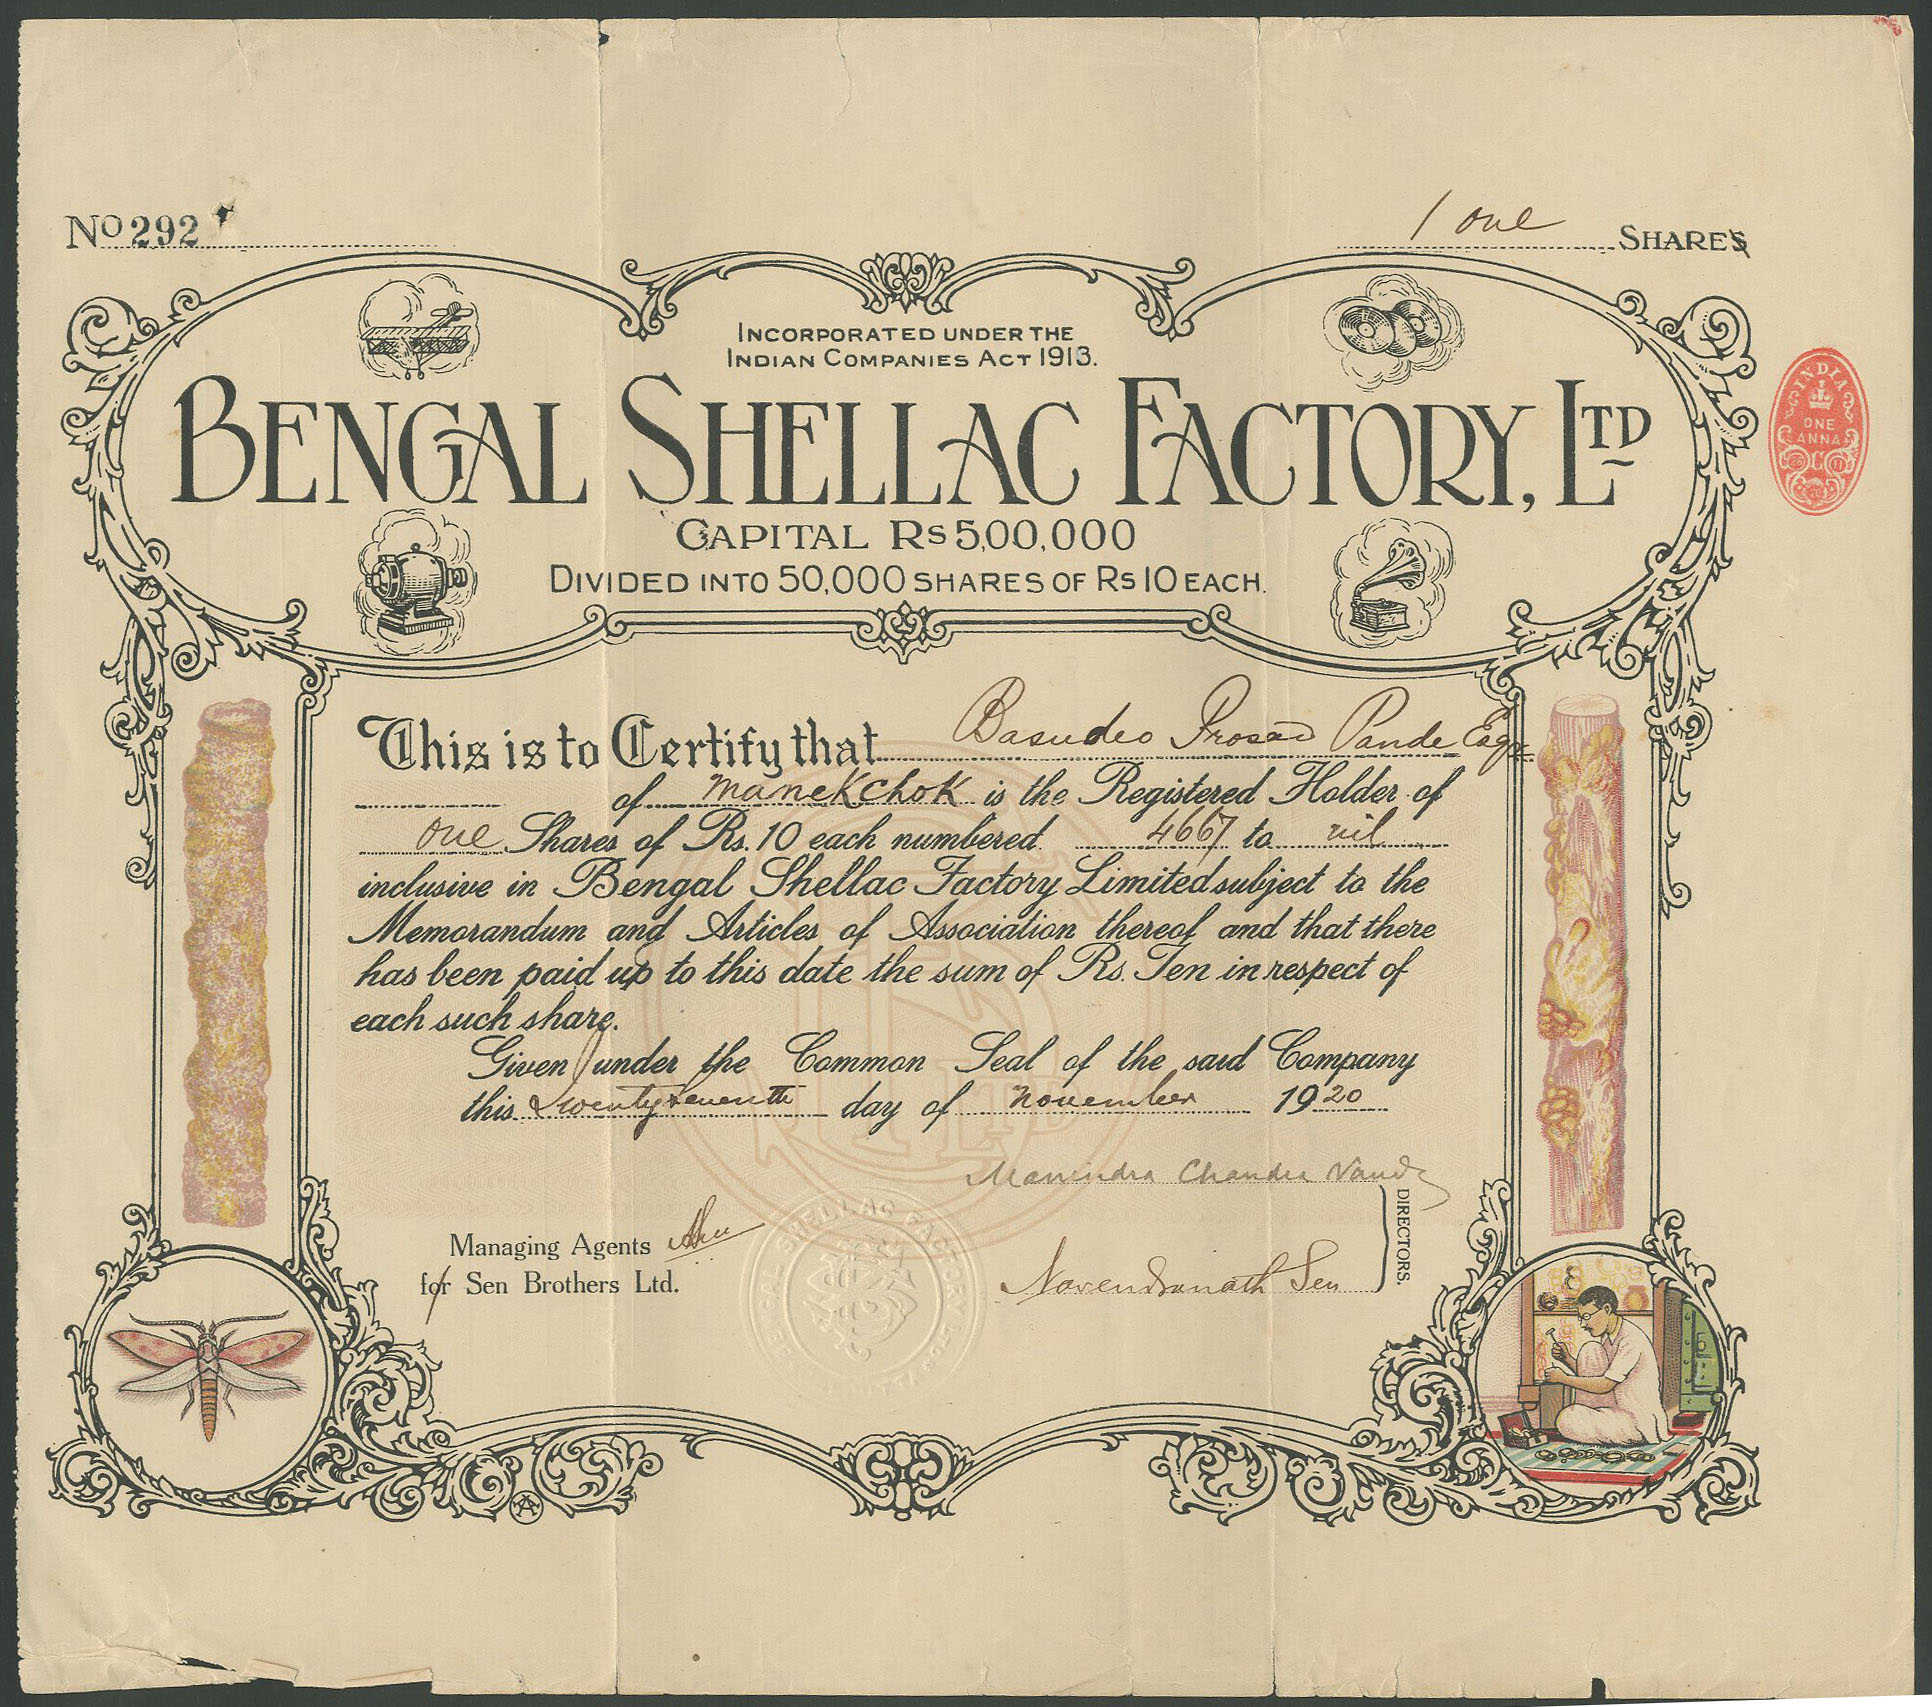 No 292
1 one SHARES
INCORPORATED UNDER THE
INDIAN COMPANIES ACT 1913.
BENGAL SHELLAC FACTORY, LTD
CAPITAL RS 5,00,000
DIVIDED INTO 50,000 SHARES OF RS 10 EACH.
INDIA
ONE
ANNA
C
This is to Certify that Basudeo Prosad Pande Esqr
of Manekchok is the Registered Holder of
one Shares of Rs. 10 each numbered 4667 to nil
inclusive in Bengal Shellac Factory Limited subject to the
Memorandum and Articles of Association thereof and that there
has been paid up to this date the sum of Rs. Ten in respect of
each such share.
Given under the Common Seal of the said Company
this Twenty seventh day of November 1920
Manindra Chandra Nandy
Managing Agents
for Sen Brothers Ltd.
Narendranath Sen
DIRECTORS.
BENGAL SHELLAC FACTORY LTD